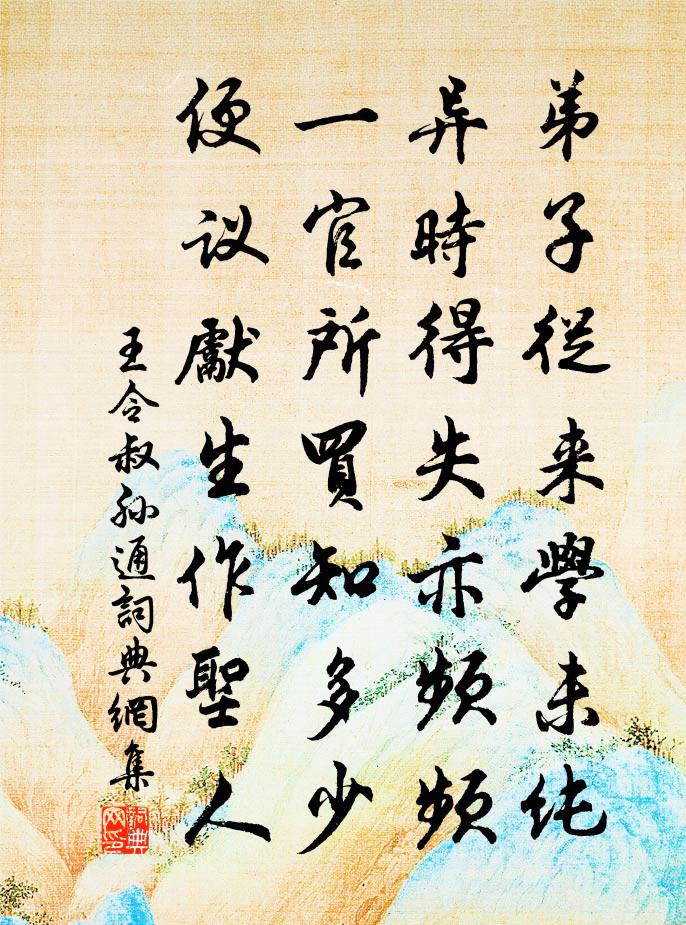 弟子從来學未純
异時得失亦頻頻
一官所買知多少
便议獻生作聖人
王令叔孙通詞典網集
詞典网印